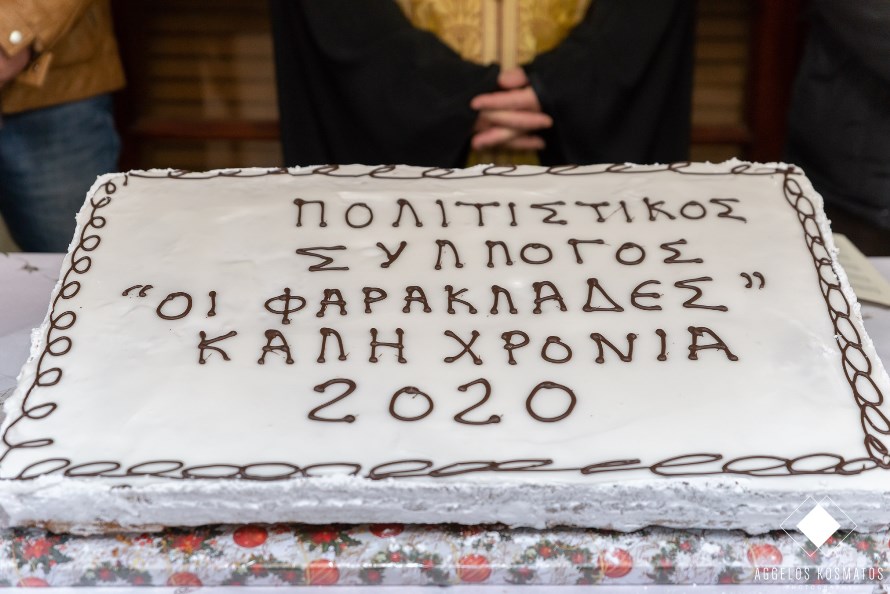 ΠΟΛΙΤΙΣΤΙΚΟΣ
ΣΥΛΛΟΓΟΣ
“ΟΙ ΦΑΡΑΚΛΑΔΕΣ”
ΚΑΛΗ ΧΡΟΝΙΑ
2020
AGGELOS KOSMATOS